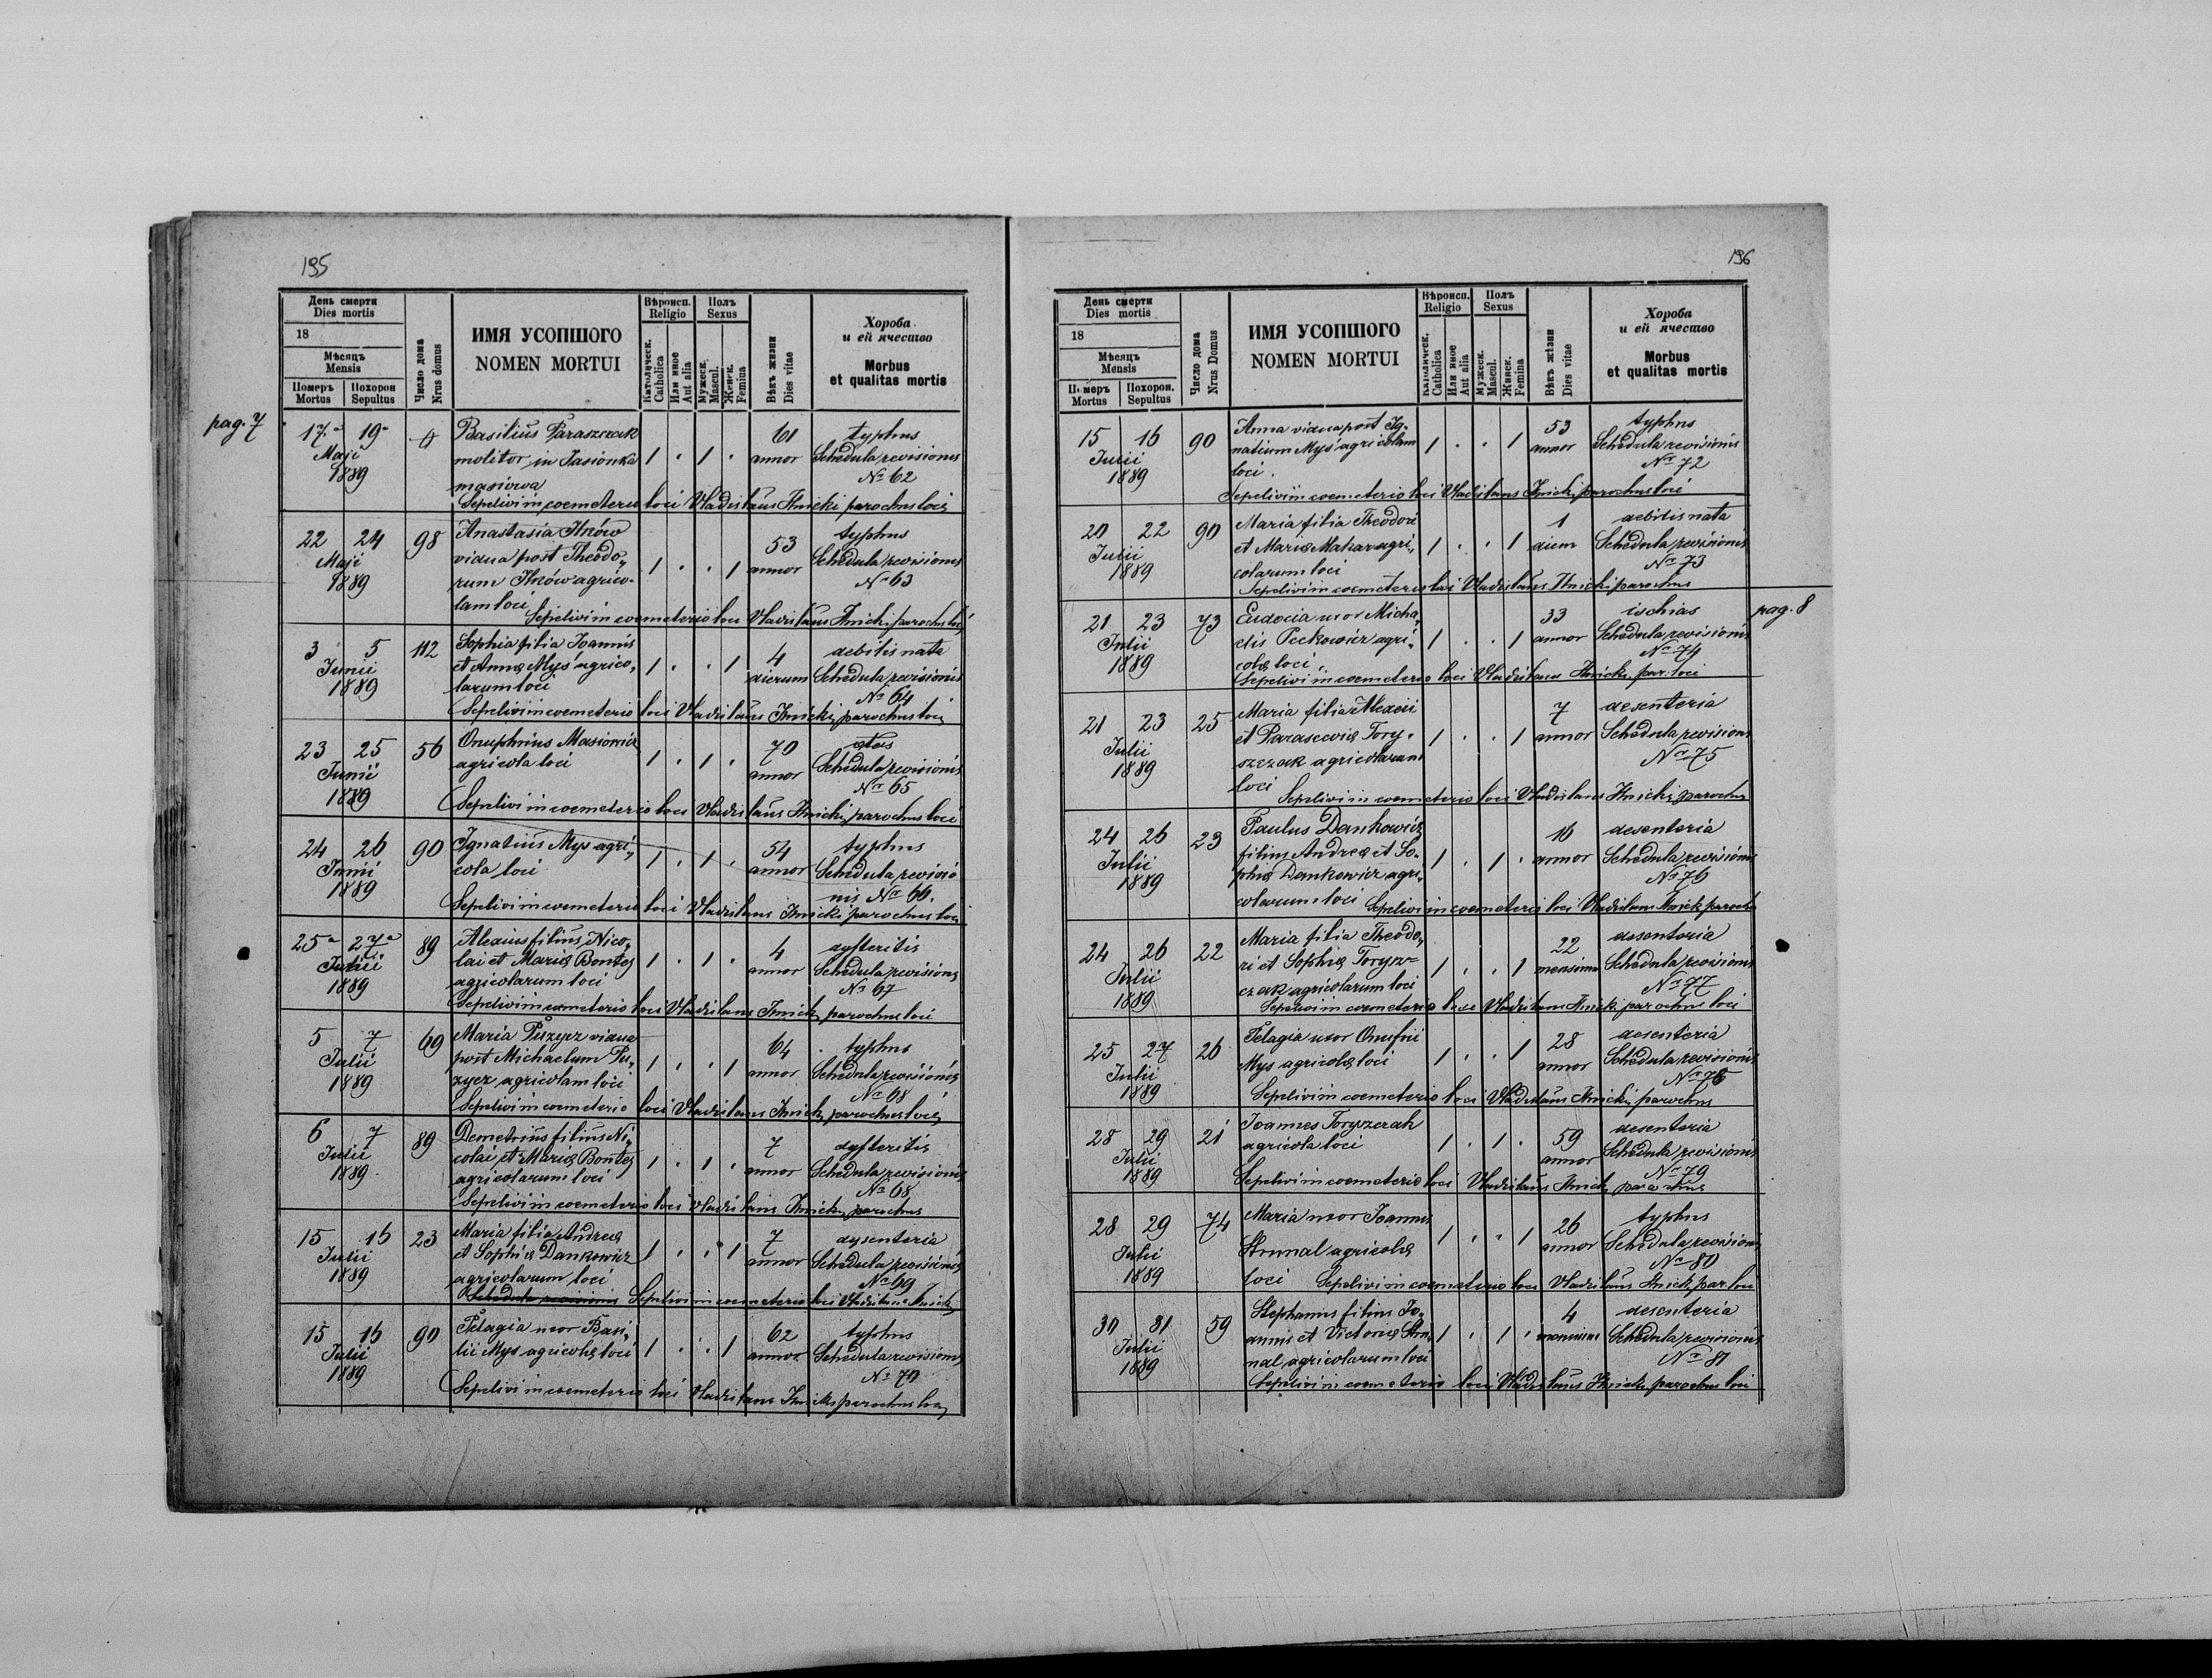 195
День смерти
Dies mortis
18
Мѣсяць
Mensis
Померъ Mortus
Похорон Sepultus
Число дома
Nrus domus
ИМЯ УСОПШОГО
NOMEN MORTUI
Вѣроисп.
Religio
Католическ.
Catholica
Или иное
Aut alia
Полъ
Sexus
Мужеск.
Mascul.
Женск.
Femina
Вѣкъ жизни
Dies vitae
Хороба
и ей ячество
Morbus
et qualitas mortis
pag. 7
17a 19a Basilius Paraszczak 1 . 1 . 61 typhus
Maji molitor in Jasionka annor Schedula revisionis
1889 masiowa No 62
Sepelivi in coemeterio loci Vladislaus Ilnicki parochus loci
22 24 98 Anastasia Ilków 1 . . 1 53 typhus
Maji vidua post Theodo„ annor Schedula revisionis
1889 rum Ilków agrico- No 63
lam loci Sepelivi in coemeterio loci Vladislaus Ilnicki parochus loci
3 5 112 Sophia filia Joannis 1 . . 1 4 debilis nata
Junii et Annae Myś agrico„ dierum Schedula revisionis
1889 larum loci No 64
Sepelivi in coemeterio loci Vladislaus Ilnicki parochus loci
23 25 56 Onuphrius Masiowicz 1 . 1 . 70
Junii agricola loci annor Schedula revisionis
1889 No 65
Sepelivi in coemeterio loci Vladislaus Ilnicki parochus loci
24 26 90 Ignatius Mys agri„ 1 . 1 . 54 typhus
Junii cola loci annor Schedula revisio
1889 nis No 66.
Sepelivi in coemeterio loci Vladislaus Ilnicki parochus loci
25a 27a 89 Alexius filius Nico„ 1 . 1 . 4 dyfteritis
lai et Mariae Bontej annor Schedula revisionis
1889 agricolarum loci No 67
Sepelivi in cometerio loci Vladislaus Ilnicki parochus loci
5 7 69 Maria Puzycz vidua 1 . . 1 64 typhus
Julii post Michaelum Pu„ annor Schedula revisionis
1889 zycz agricolam loci No 68
Sepelivi in coemeterio loci Vladislaus Ilnicki parochus loci
6 7 89 Demetrius filius Ni„ 1 . 1 . 7 dyfteritis
Julii colai et Mariae Bontej annor Schedula revisionis
1889 agricolarum loci No 68
Sepelivi in coemeterio loci Vladislaus Ilnicki parochus
15 16 23 Maria filia Andreae 1 . . 1 7 dysenteria
Julii et Sophiae Dankowicz annor Schedula revisionis
1889 agricolarum loci No 69
Schedula revisionis Sepelivi in coemeterio loci Vladislaus Ilnicki
15 16 90 Pelagia uxor Basi„ 1 . . 1 62 typhus
Julii lii Mys agricolae loci annor Schedula revisionis
1889 No 70
Sepelivi in coemeterio loci Vladislaus Ilnicki parochus loci
196
День смерти
Dies mortis
18
Мѣсяць
Mensis
Померъ Mortus
Похорон. Sepultus
Число дома
Nrus Domus
ИМЯ УСОПШОГО
NOMEN MORTUI
Вѣроисп.
Religio
Католическ.
Catholica
Или иное
Aut alia
Полъ
Sexus
Мужеск.
Mascul.
Женск.
Femina
Вѣкъ жізни
Dies vitae
Хороба
и ей ячество
Morbus
et qualitas mortis
15 16 90 Anna vidua post Ig- 1 . . 1 53 typhus
Julii natium Myś agricolam annor Schedula revisionis
1889 loci. No 72
Sepelivi in coemeterio loci Vladislaus Ilnicki parochus loci
20 22 90 Maria filia Theodori 1 . . 1 1 debilis nata
Julii et Mariae Makar agri„ diem Schedula revisionis
1889 colarum loci No 73
Sepelivi in coemeterio loci Vladislaus Ilnicki parochus
pag. 8
21 23 73 Eudocia uxor Micha„ 1 . . 1 33 ischias
Julii elis Peckowicz agri„ annor Schedula revisionis
1889 colae loci No 74
Sepelivi in coemeterio loci Vladislaus Ilnicki par. loci
21 23 25 Maria filia Alexii 1 . . 1 7 desenteria
Julii et Parascevia Tory- annor Schedula revisionis
1889 szczak agricolarum No 75
loci Sepelivi in coemeterio loci Vladislaus Ilnicki parochus
24 26 23 Paulus Dankowicz 1 . 1 . 16 desenteria
Julii filius Andreae et So„ annor Schedula revisionis
1889 phiae Dankowicz agri„ No 76
colarum loci Sepelivi in coemeterio loci Vladislaus Ilnicki parochu
24 26 22 Maria filia Theodo„ 1 . . 1 22 desenteria
Julii ri et Sophiae Torysz= Schedula revisionis
1889 czak agricolarum loci No 77
Sepelivi in coemeterio loci Vladislaus Ilnicki parochus loci
25 27 26 Pelagia uxor Onufrii 1 . . 1 28 desenteria
Julii Mys agricolae loci annor Schedula revisionis
1889 No 78
Sepelivi in coemeterio loci Vladislaus Ilnicki parochus
28 29 21 Joannes Toryszczak 1 . 1 . 59 desenteria
Julii agricola loci annor Schedula revisionis
1889 No 79
Sepelivi in coemeterio loci Vladislaus Ilnicki parochus
28 29 74 Maria uxor Joannis 1 . . 1 26 typhus
Julii Strunal agricolae annor Schedula revisionis
1889 No 80
loci Sepelivi in coemeterio loci Vladislaus Ilnicki par. loci
30 31 59 Stephanus filius Jo„ 1 . 1 . 4 desenteria
Julii annis et Victoriae Stru„ Schedula revisionis
1889 nal agricolarum loci No 81
Sepelivi in coemeterio loci Vladislaus Ilnicki parochus loci